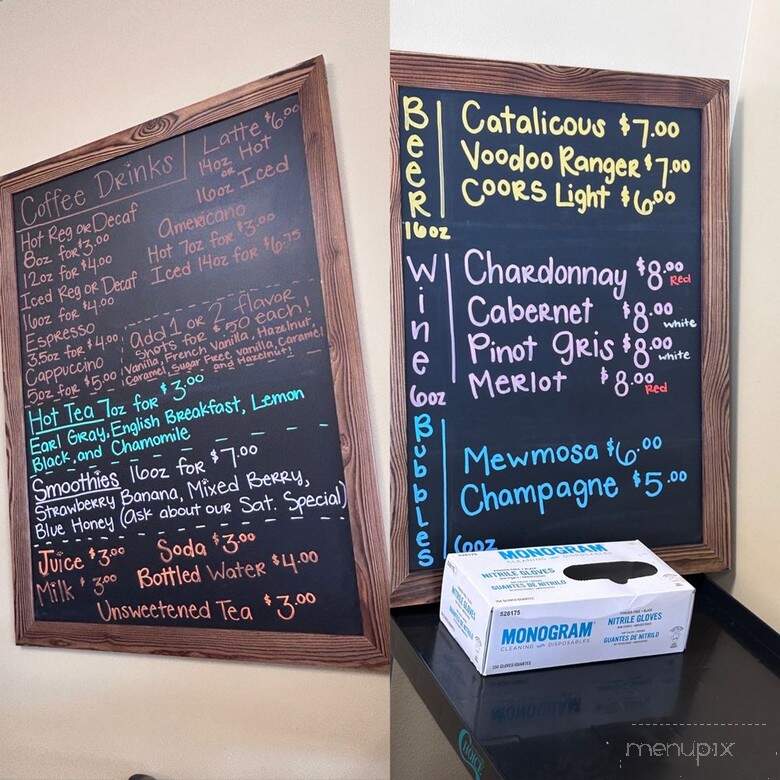 Coffee Drinks
Hot Reg or Decaf
8oz for $3.00
12oz for $4.00
Iced Reg or Decaf
16oz for $4.00
Espresso
3.5oz for $4.00
Cappuccino
5oz for $5.00
Latte $6.00
14oz Hot
or
16oz Iced
Americano
Hot 7oz for $3.00
Iced 14oz for $6.75
add 1 or 2 flavor
shots for $.50 each!
Vanilla, French Vanilla, Hazelnut,
Caramel, Sugar Free Vanilla, Caramel
and Hazelnut!
Hot Tea 7oz for $3.00
Earl Gray, English Breakfast, Lemon
Black, and Chamomile
Smoothies 16oz for $7.00
Strawberry Banana, Mixed Berry,
Blue Honey (Ask about our Sat. Special)
Juice $3.00 Soda $3.00
Milk $3.00 Bottled Water $4.00
Unsweetened Tea $3.00
Beer
16oz
Catalicous $7.00
Voodoo Ranger $7.00
Coors Light $6.00
Wine
6oz
Chardonnay $8.00 Red
Cabernet $8.00 white
Pinot Gris $8.00 white
Merlot $8.00 Red
Bubbles
6oz
Mewmosa $6.00
Champagne $5.00
MONOGRAM
CLEANING with DISPOSABLES
NITRILE GLOVES
GUANTES DE NITRILO
NITRILE GLOVES
GUANTES DE NITRILO
528175
MONOGRAM
CLEANING with DISPOSABLES
NITRILE GLOVES
GUANTES DE NITRILO
CHOICE
menupix